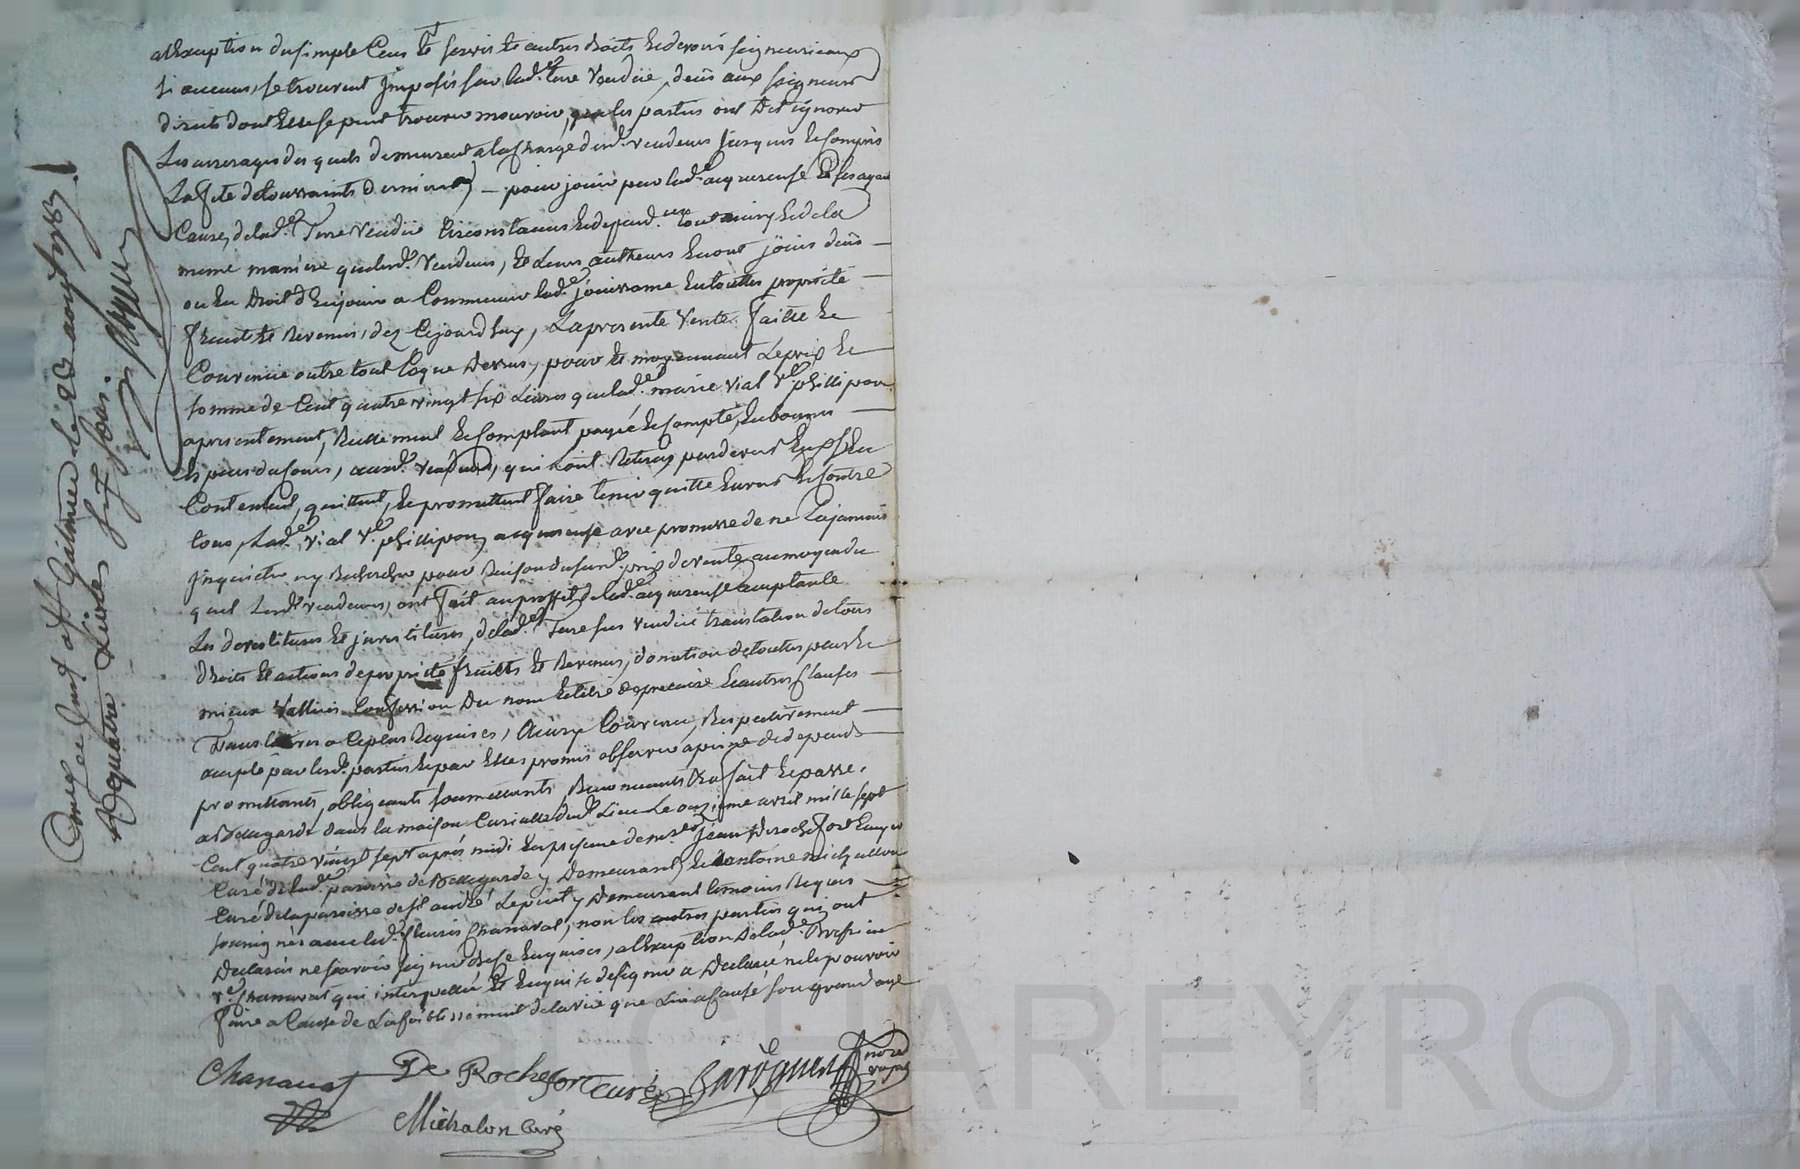 alExeption du simple Cens Et servis Et autres droits Et devoirs seigneuriaux
si aucuns, se trouvent Jmposés sur lad.e terre Vendüe, deüs aux seigneurs
directs dont Elle se peut trouver mouvoir, que les parties ont Dit ignorer
Les arrerages des quels demeurent a la Charge desd. vendeurs Jusques Et Compris
La fete de toussaints Derniere, — pour jouir par lad.e acquereuse Et ses ayant
Cause, de lad.e Terre Vendüe Circonstances Et depend.ces tout ainsy Et de la
meme maniere que lesd. Vendeurs, Et Leurs autheurs En ont joüis deüs —
ou Eu Droit d'En jouir a Commencer lad.e jouissance En touttes proprieté —
fruits Et Revenus, dez Cejourdhuy, La presente Vente faitte Et —
Convenüe outre tout Ceque Dessus, pour Et moyennant Le prix Et —
somme de Cent quatre vingt six Livres que lad.e marie vial V.e phillipon
a presentement, Reellement Et Comptant payée Et Compté, En bonnes —
Especes du Cours, auxd. vendeurs, qui L'ont Retirée pardevers Eux s'En
Contentent, quittent, Et promettent faire tenir quitte Envers Et Contre
tous, Lad.e vial V.e phillipon, acquereuse avec promesse de ne La jamais
Jnquieter ny Rechercher pour Raison du susd. prix de vente au moyen du
quel Lesd. vendeurs, ont fait au proffit de lad.e acquereuse acceptante
Les devestitures Et jnvestitures, de lad.e Terre sus vendüe translation de tous
droits Et actions de proprieté fruits Et Revenus, donation de touttes plus Et
mieux Vallües Confession Du nom Et titre de precaire Et autres Clauses —
Translatives a Ce plus Requises, Ainsy Convenu, Respectivement —
accepté par lesd. parties Et par Elles promis observer a peine de depends —
promettants, obligeants soumettants, Renoncants Etc fait Et passé,
a Bellegarde dans la maison Curialle dud. Lieu Le onzieme avril mille sept
Cent quatre vingt sept aprés midi En presence de m.re Jean De rochefort Ecuyer
Curé de lad.e paroisse de Bellegarde y Demeurant, Et antoine michallon
Curé de la paroisse de st andré Le puit y Demeurant temoins Requis —
soussignés avec led. fleuris Chanavat, non les autres parties qui ont
Declarés ne sçavoir signer de ce Enquises, a lExeption de lad.e
v.e Chanavat qui interpellée Et Enquise de signer a Declaré ne le pouvoir
faire a Cause de Laffoiblissement de la vüe que Lui a Causé son grand age
Chanavat De Rochefort curé
Michalon Curé
a St Galmier le 22 avril 1787.
quatre Livres
CHAREYRON